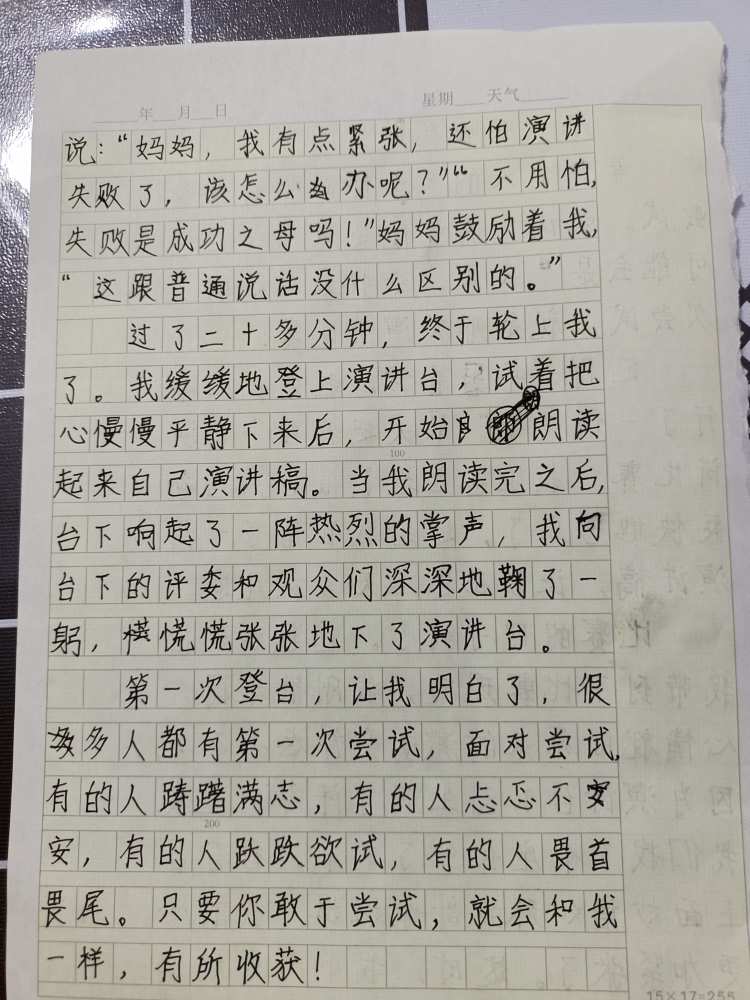 年 月 日 星期 天气
说：“妈妈，我有点紧张，还怕演讲
失败了，该怎么办呢？”“不用怕，
失败是成功之母吗！”妈妈鼓励着我，
“这跟普通说话没什么区别的。”
过了二十多分钟，终于轮上我
了。我缓缓地登上演讲台，试着把
心慢慢平静下来后，开始朗读
100
起来自己演讲稿。当我朗读完之后，
台下响起了一阵热烈的掌声，我向
台下的评委和观众们深深地鞠了一
躬，慌慌张张地下了演讲台。
第一次登台，让我明白了，很
多人都有第一次尝试，面对尝试，
有的人踌躇满志，有的人忐忑不
200
安，有的人跃跃欲试，有的人畏首
畏尾。只要你敢于尝试，就会和我
一样，有所收获！
15×17=255